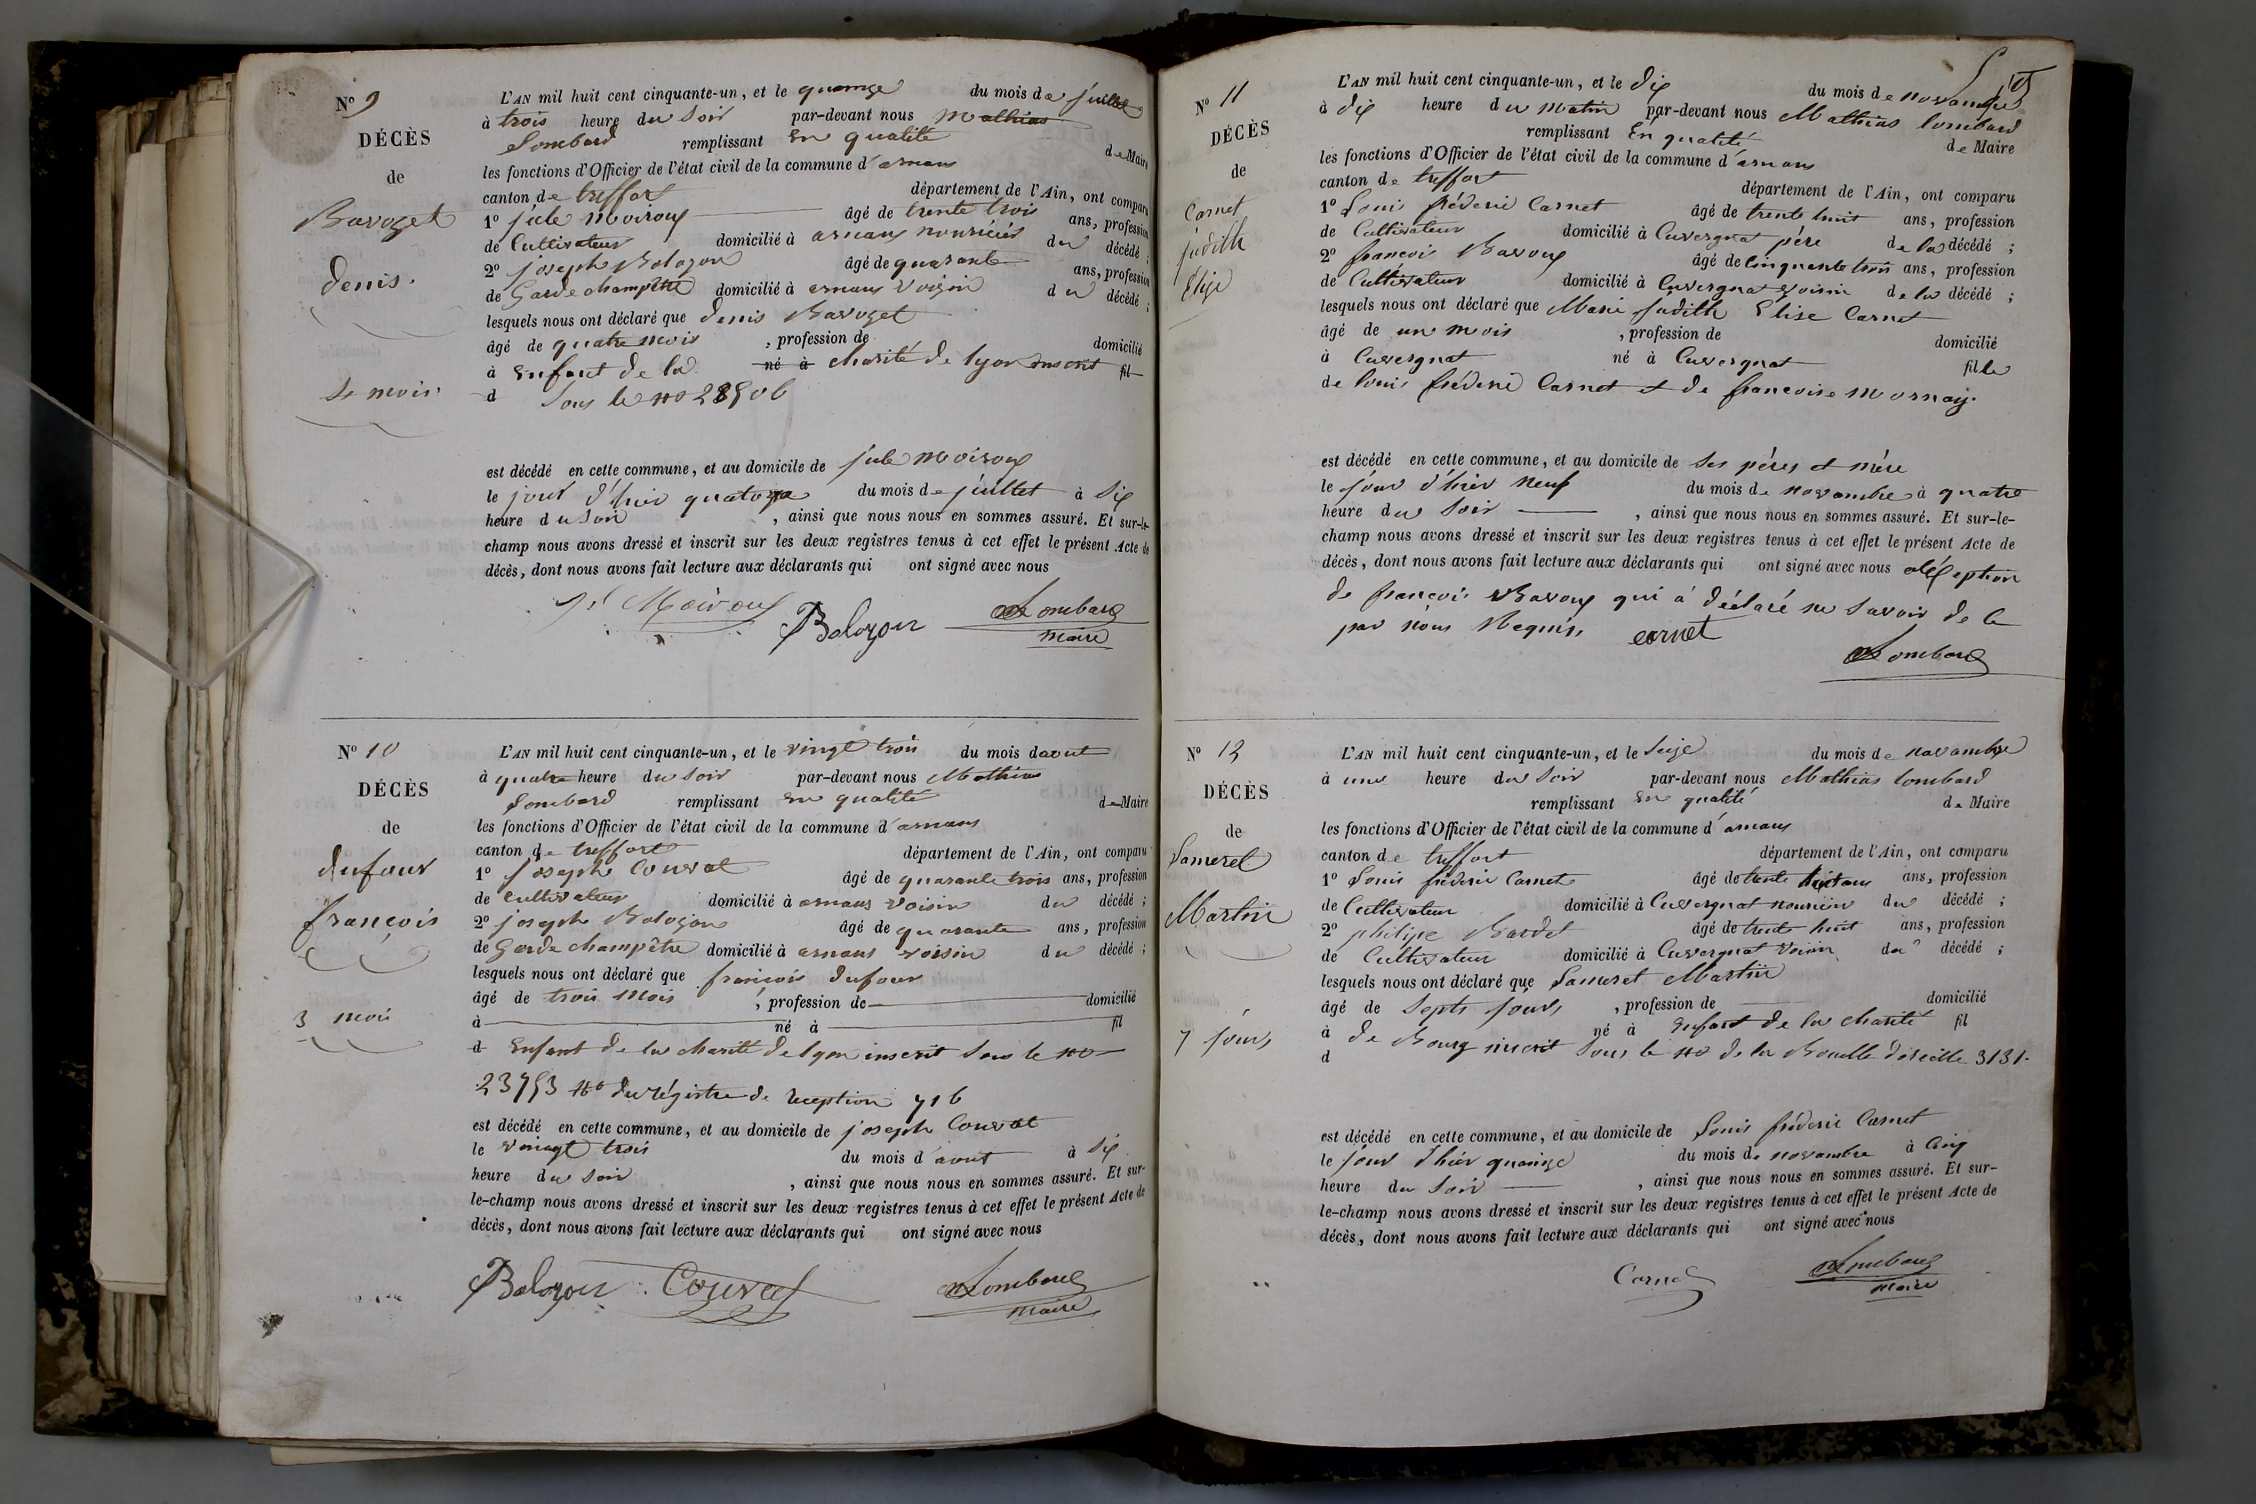 N° 9
DÉCÈS
de
Bavozet
denis.
4 mois
L'AN mil huit cent cinquante-un, et le quinze du mois de juillet
à trois heure du soir par-devant nous Mathias
Lombard remplissant En qualité de Maire
les fonctions d'Officier de l'état civil de la commune d'arnans
canton de treffort département de l'Ain, ont comparu
1° jule Moiroux âgé de trente trois ans, profession
de Cultivateur domicilié à arnans nourricier du décédé ;
2° joseph Bolozon âgé de quarante ans, profession
de Garde champêtre domicilié à arnans voisin du décédé ;
lesquels nous ont déclaré que denis Bavozet
âgé de quatre mois , profession de domicilié
à Enfant de la né à charité de lyon inscrit fil
d Sous le no
est décédé en cette commune, et au domicile de jule Moiroux
le jour d'hier quatorze du mois de juillet à Six
heure du soir , ainsi que nous nous en sommes assuré. Et sur-le-
champ nous avons dressé et inscrit sur les deux registres tenus à cet effet le présent Acte de
décès, dont nous avons fait lecture aux déclarants qui ont signé avec nous
Moiroux Bolozon Lombard
maire
N° 10
DÉCÈS
de
dufour
françois
3 mois
L'AN mil huit cent cinquante-un, et le vingt trois du mois daout
à quatre heure du soir par-devant nous Mathias
Lombard remplissant En qualité de Maire
les fonctions d'Officier de l'état civil de la commune d'arnans
canton de treffort département de l'Ain, ont comparu
1° joseph Couvat âgé de quarante trois ans, profession
de cultivateur domicilié à arnans voisin du décédé ;
2° joseph Bolozon âgé de quarante ans, profession
de Garde champêtre domicilié à arnans voisin du décédé ;
lesquels nous ont déclaré que françois dufour
âgé de trois mois , profession de domicilié
à né à fil
d Enfant de la charité de lyon inscrit sous le no
23753 no du régistre de reception 716
est décédé en cette commune, et au domicile de joseph Couvat
le vingt trois du mois d'aout à Six
heure du soir , ainsi que nous nous en sommes assuré. Et sur-
le-champ nous avons dressé et inscrit sur les deux registres tenus à cet effet le présent Acte de
décès, dont nous avons fait lecture aux déclarants qui ont signé avec nous
Bolozon Couvat Lombard
maire
N° 11
DÉCÈS
de
Carnet
judith
Elize
L'AN mil huit cent cinquante-un, et le dix du mois de novembre
à dix heure du matin par-devant nous Mathias lombard
remplissant En qualité de Maire
les fonctions d'Officier de l'état civil de la commune d'arnans
canton de treffort département de l'Ain, ont comparu
1° Louis fréderic Carnet âgé de trente huit ans, profession
de Cultivateur domicilié à Cuvergnat père de la décédé ;
2° françois Bavoux âgé de cinquante trois ans, profession
de Cultivateur domicilié à Cuvergnat voisin de la décédé ;
lesquels nous ont déclaré que Marie judith Elise Carnet
âgé de un mois , profession de domicilié
à Cuvergnat né à Cuvergnat fille
de louis fréderic Carnet et de françoise Mornay.
est décédé en cette commune, et au domicile de ses péres et mére
le jour d'hier neuf du mois de novembre à quatre
heure du soir , ainsi que nous nous en sommes assuré. Et sur-le-
champ nous avons dressé et inscrit sur les deux registres tenus à cet effet le présent Acte de
décès, dont nous avons fait lecture aux déclarants qui ont signé avec nous
de françois Bavoux qui a déclaré ne savoir de le
par nous Requis carnet
Lombard
N° 12
DÉCÈS
de
Lameret
Martin
7 jours
L'AN mil huit cent cinquante-un, et le Seize du mois de novembre
à une heure du soir par-devant nous Mathias lombard
remplissant En qualité de Maire
les fonctions d'Officier de l'état civil de la commune d'arnans
canton de treffort département de l'Ain, ont comparu
1° Louis fréderic Carnet âgé de trente huit ans ans, profession
de Cultivateur domicilié à Cuvergnat nourricier du décédé ;
2° philipe Bardet âgé de trente huit ans, profession
de Cultivateur domicilié à Cuvergnat voisin du décédé ;
lesquels nous ont déclaré que Lameret Martin
âgé de Septs jours , profession de domicilié
à de Bourg né à Enfant de la charité fil
d inscrit Sous le no de la Boucle d'oreille 3131.
est décédé en cette commune, et au domicile de Louis fréderic Carnet
le jour d'hier quinze du mois de novembre à Cinq
heure du soir , ainsi que nous nous en sommes assuré. Et sur-
le-champ nous avons dressé et inscrit sur les deux registres tenus à cet effet le présent Acte de
décès, dont nous avons fait lecture aux déclarants qui ont signé avec nous
Carnet Lombard
maire